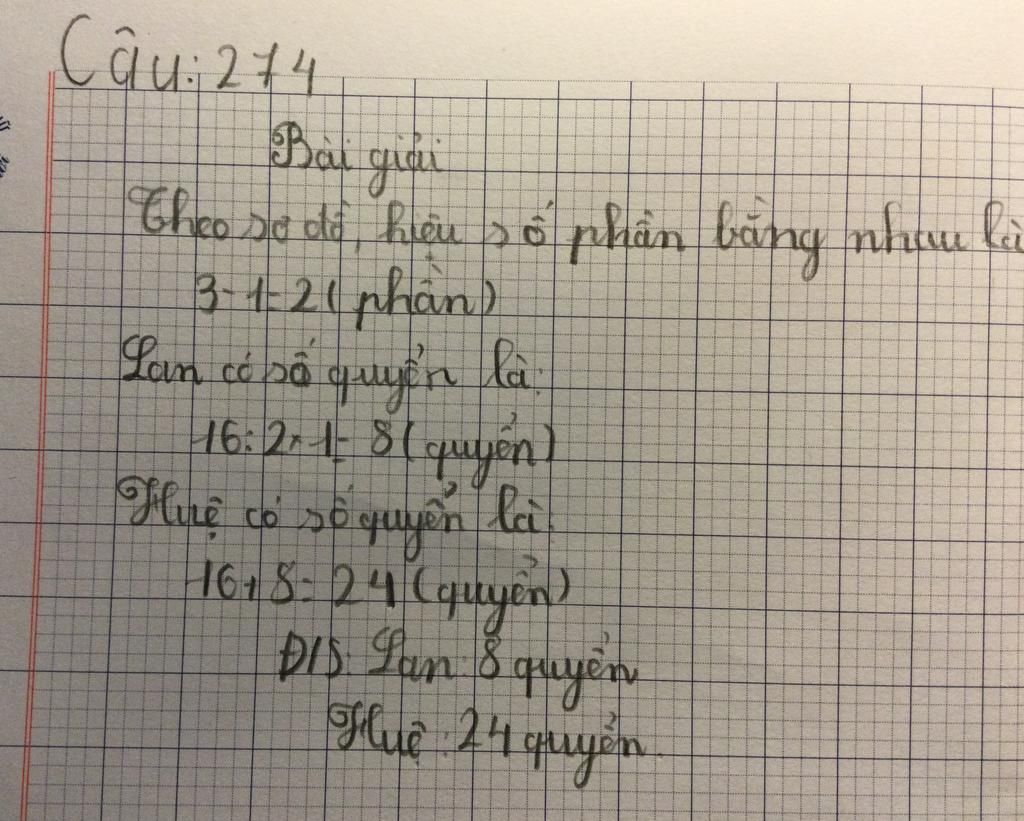 Câu: 274
Bài giải
Theo sơ đồ, hiệu số phần bằng nhau là
3-1=2( phần)
Lan có số quyển là:
16:2×1= 8(quyển)
Huệ có số quyển là:
16+8= 24(quyển)
Đ/S: Lan: 8 quyển
Huệ: 24 quyển.